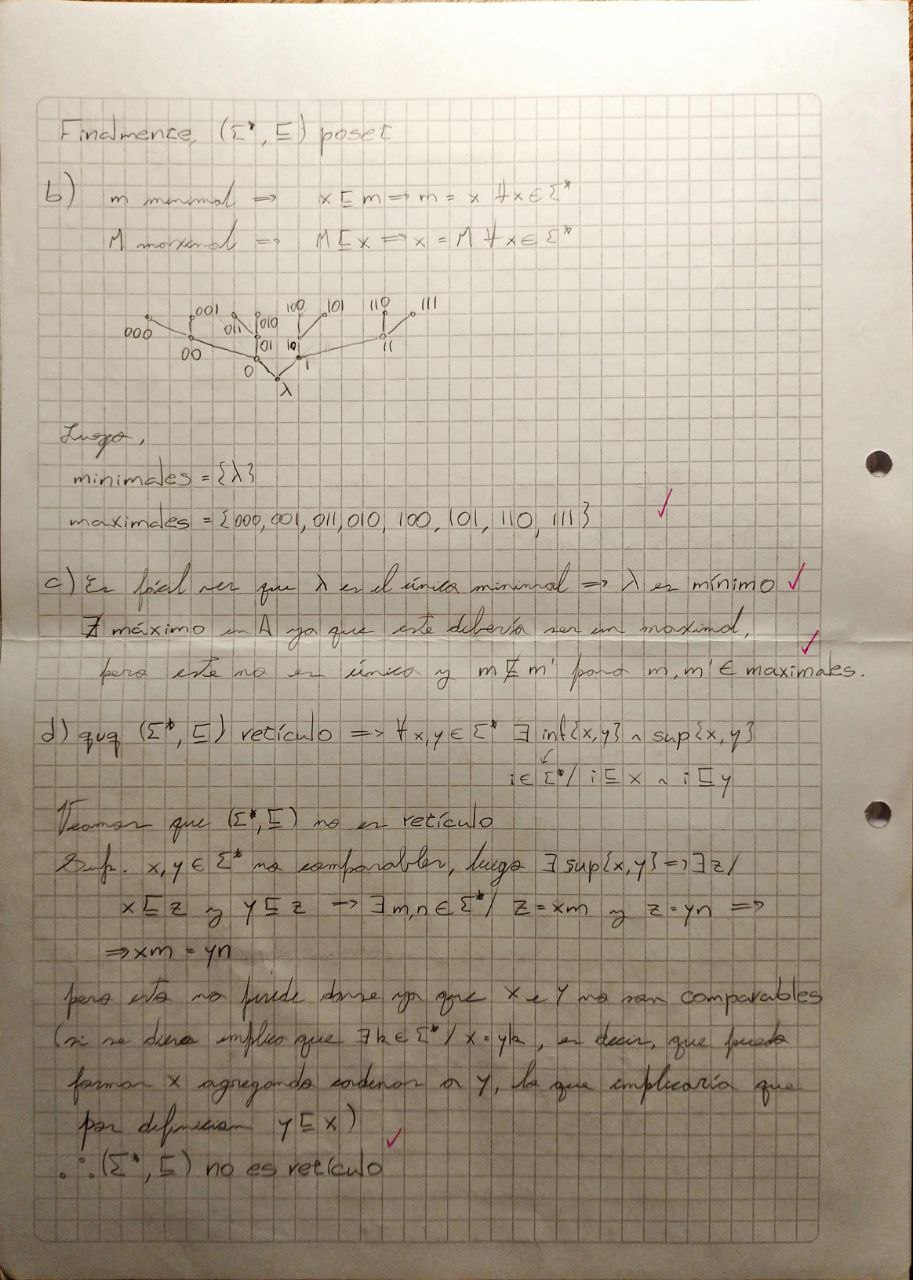 Finalmente, (Σ*, ⊑) poset
b) m minimal => x ⊑ m => m = x ∀x ∈ Σ*
M maximal => M ⊑ x => x = M ∀x ∈ Σ*
000 001 011 010 100 101 110 111
00 01 10 11
0 1
λ
Luego,
minimales = {λ}
maximales = {000, 001, 011, 010, 100, 101, 110, 111} ✓
c) Es fácil ver que λ es el único minimal => λ es mínimo ✓
∄ máximo en A ya que este debería ser un maximal,
pero este no es único y m ⋢ m' para m, m' ∈ maximales. ✓
d) qvq (Σ*, ⊑) retículo => ∀x,y ∈ Σ* ∃ inf{x,y} ∧ sup{x,y}
i ∈ Σ* / i ⊑ x ∧ i ⊑ y
Veamos que (Σ*, ⊑) no es retículo
Sup. x, y ∈ Σ* no comparables, luego ∃ sup{x,y} => ∃z /
x ⊑ z y y ⊑ z -> ∃m,n ∈ Σ* / z = xm y z = yn =>
=> xm = yn
pero esto no puede darse ya que x e y no son comparables
(si se diera implica que ∃k ∈ Σ* / x = yk, es decir, que puedo
formar x agregando cadenas a y, lo que implicaría que
por definicion y ⊑ x) ✓
∴ (Σ*, ⊑) no es retículo